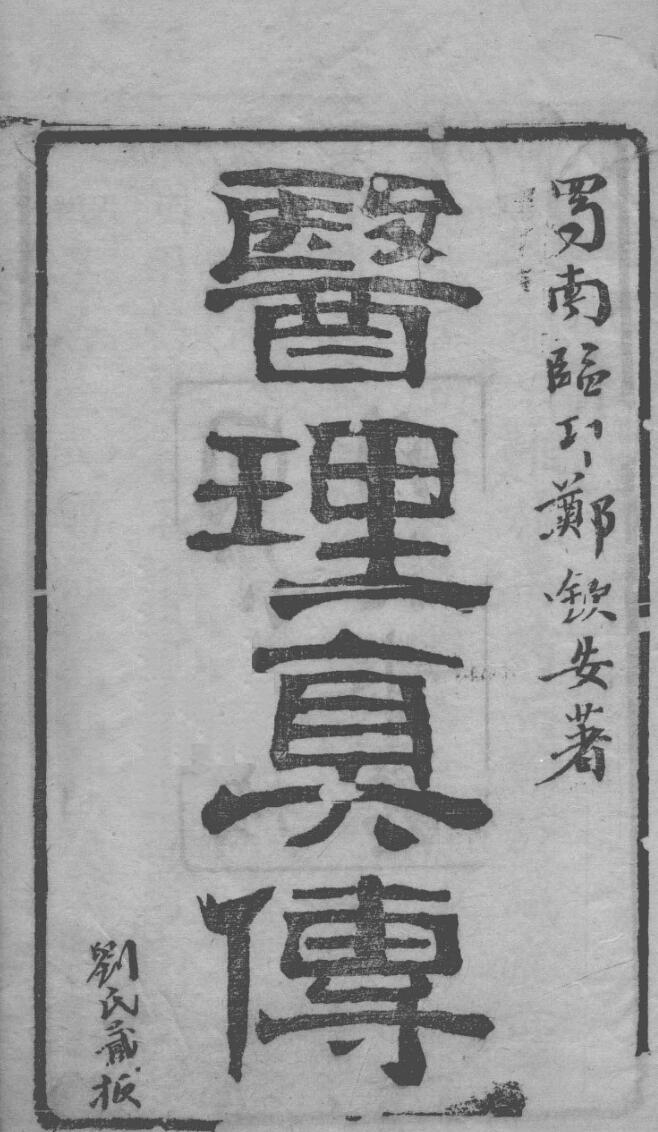 蜀南臨邛鄭欽安著
醫理真傳
劉氏藏板